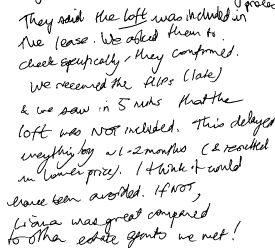 They said the loft was included in
the lease. We asked them to
check specifically, they confirmed.
We received the HIPs (late)
& we saw in 5 mins that the
loft was NOT included. This delayed
everything by ~1-2 months (& resulted
in lower price). I think it would
have been avoided. If NOT,
was great compared
to other estate agents we met!